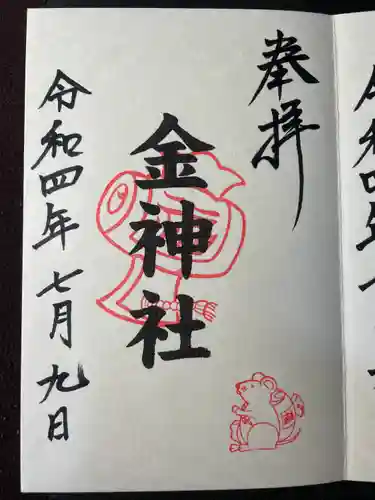 奉拝
金神社
令和四年七月九日